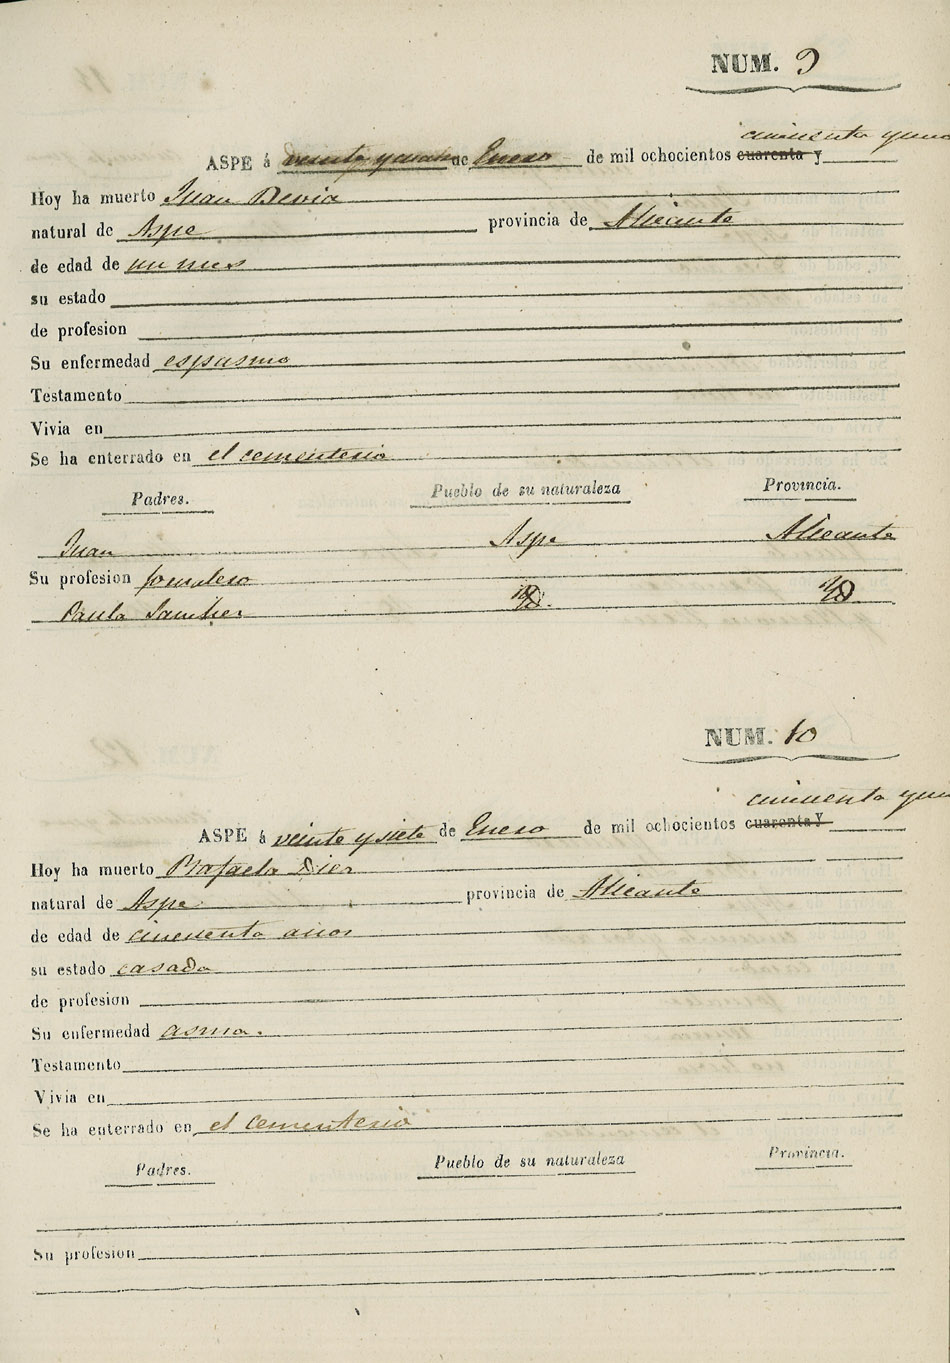 NUM. 9
cincuenta y uno
ASPE á veinte y cuatro de Enero de mil ochocientos cuarenta y
Hoy ha muerto Juan Devia
natural de Aspe provincia de Alicante
de edad de un mes
su estado
de profesion
Su enfermedad espasmo
Testamento
Vivia en
Se ha enterrado en el cementerio
Padres. Pueblo de su naturaleza Provincia.
Juan Aspe Alicante
Su profesion jornalero
Paula Sanchez
NUM. 10
cincuenta y uno
ASPE á veinte y siete de Enero de mil ochocientos cuarenta y
Hoy ha muerto Rafaela Dies
natural de Aspe provincia de Alicante
de edad de cincuenta años
su estado casada
de profesion
Su enfermedad asma.
Testamento
Vivia en
Se ha enterrado en el cementerio
Padres. Pueblo de su naturaleza Provincia.
Su profesion